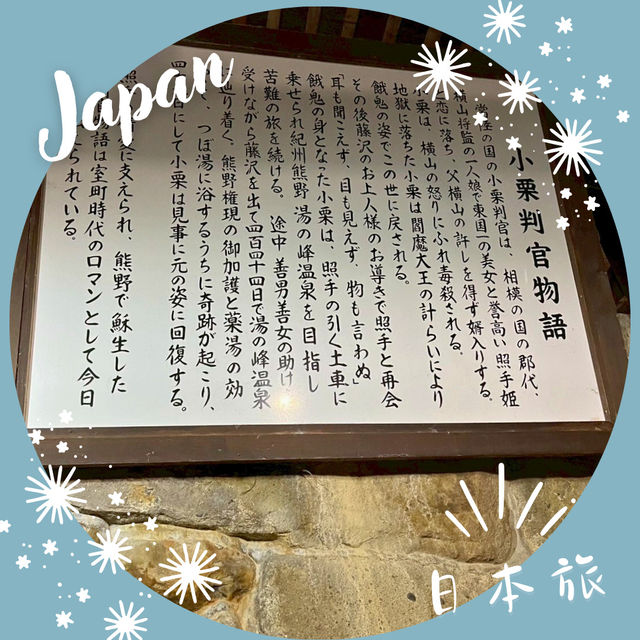 Japan
小栗判官物語
常陸の国の小栗判官は、相模の国の郡代、
横山将監の一人娘で東国一の美女と誉高い照手姫
恋に落ち、父横山の許しを得ず婿入りする。
小栗は、横山の怒りにふれ毒殺される。
地獄に落ちた小栗は閻魔大王の計らいにより
餓鬼の姿でこの世に戻される。
その後藤沢のお上人様のお導きで照手と再会
「耳も聞こえず、目も見えず、物も言わぬ」
餓鬼の身となった小栗は、照手の引く土車に
乗せられ紀州熊野 湯の峰温泉を目指し
苦難の旅を続ける。 途中 善男善女の助け
受けながら藤沢を出て四百四十四日で湯の峰温泉
辿り着く、熊野権現の御加護と薬湯の効
、つぼ湯に浴するうちに奇跡が起こり、
四 日にして小栗は見事に元の姿に回復する。
照 に支えられ、熊野で蘇生した
物語は室町時代のロマンとして今日
られている。
日本旅